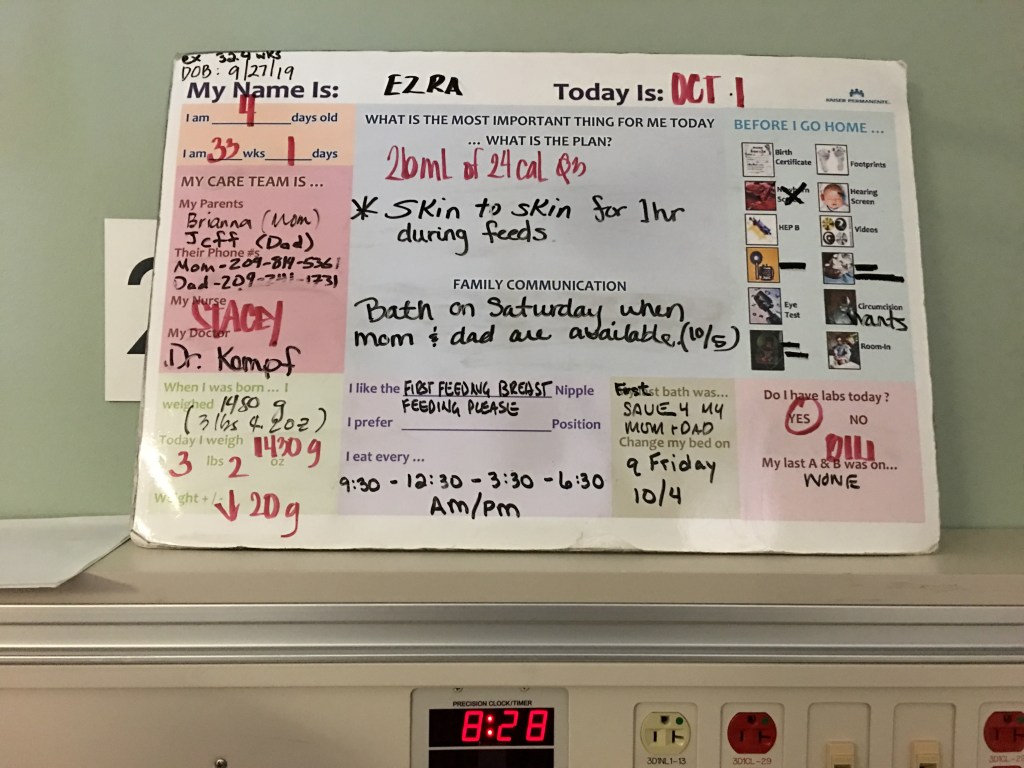 ex 32.4 wks
DOB: 9/27/19
My Name Is: EZRA
Today Is: OCT 1
KAISER PERMANENTE
I am 4 days old
I am 33 wks 1 days
MY CARE TEAM IS ...
My Parents
Brianna (Mom)
Jeff (Dad)
Their Phone #s
Mom-209-819-5361
Dad-209- -1731
My Nurse
STACEY
My Doctor
Dr. Kampf
When I was born ... I
weighed 1480 g
(3 lbs 4.2oz)
Today I weigh 1430 g
3 lbs 2 oz
Weight +/-
↓ 20g
WHAT IS THE MOST IMPORTANT THING FOR ME TODAY
... WHAT IS THE PLAN?
26ml of 24 cal Q3
* Skin to skin for 1hr
during feeds
FAMILY COMMUNICATION
Bath on Saturday when
mom & dad are available (10/5)
I like the FIRST FEEDING BREAST Nipple
FEEDING PLEASE
I prefer Position
I eat every ...
9:30 - 12:30 - 3:30 - 6:30
Am/pm
First bath was...
SAVE 4 MY
MOM + DAD
Change my bed on
q Friday
10/4
BEFORE I GO HOME ...
Birth
Certificate
Footprints
Newborn
Hearing
Screen
HEP B
Videos
Eye
Test
Circumcision
wants
Room-In
Do I have labs today?
YES NO
My last A & B was on...
NONE
2
PRECISION CLOCK/TIMER
8:28
3D1NL1-13
3D1CL-29